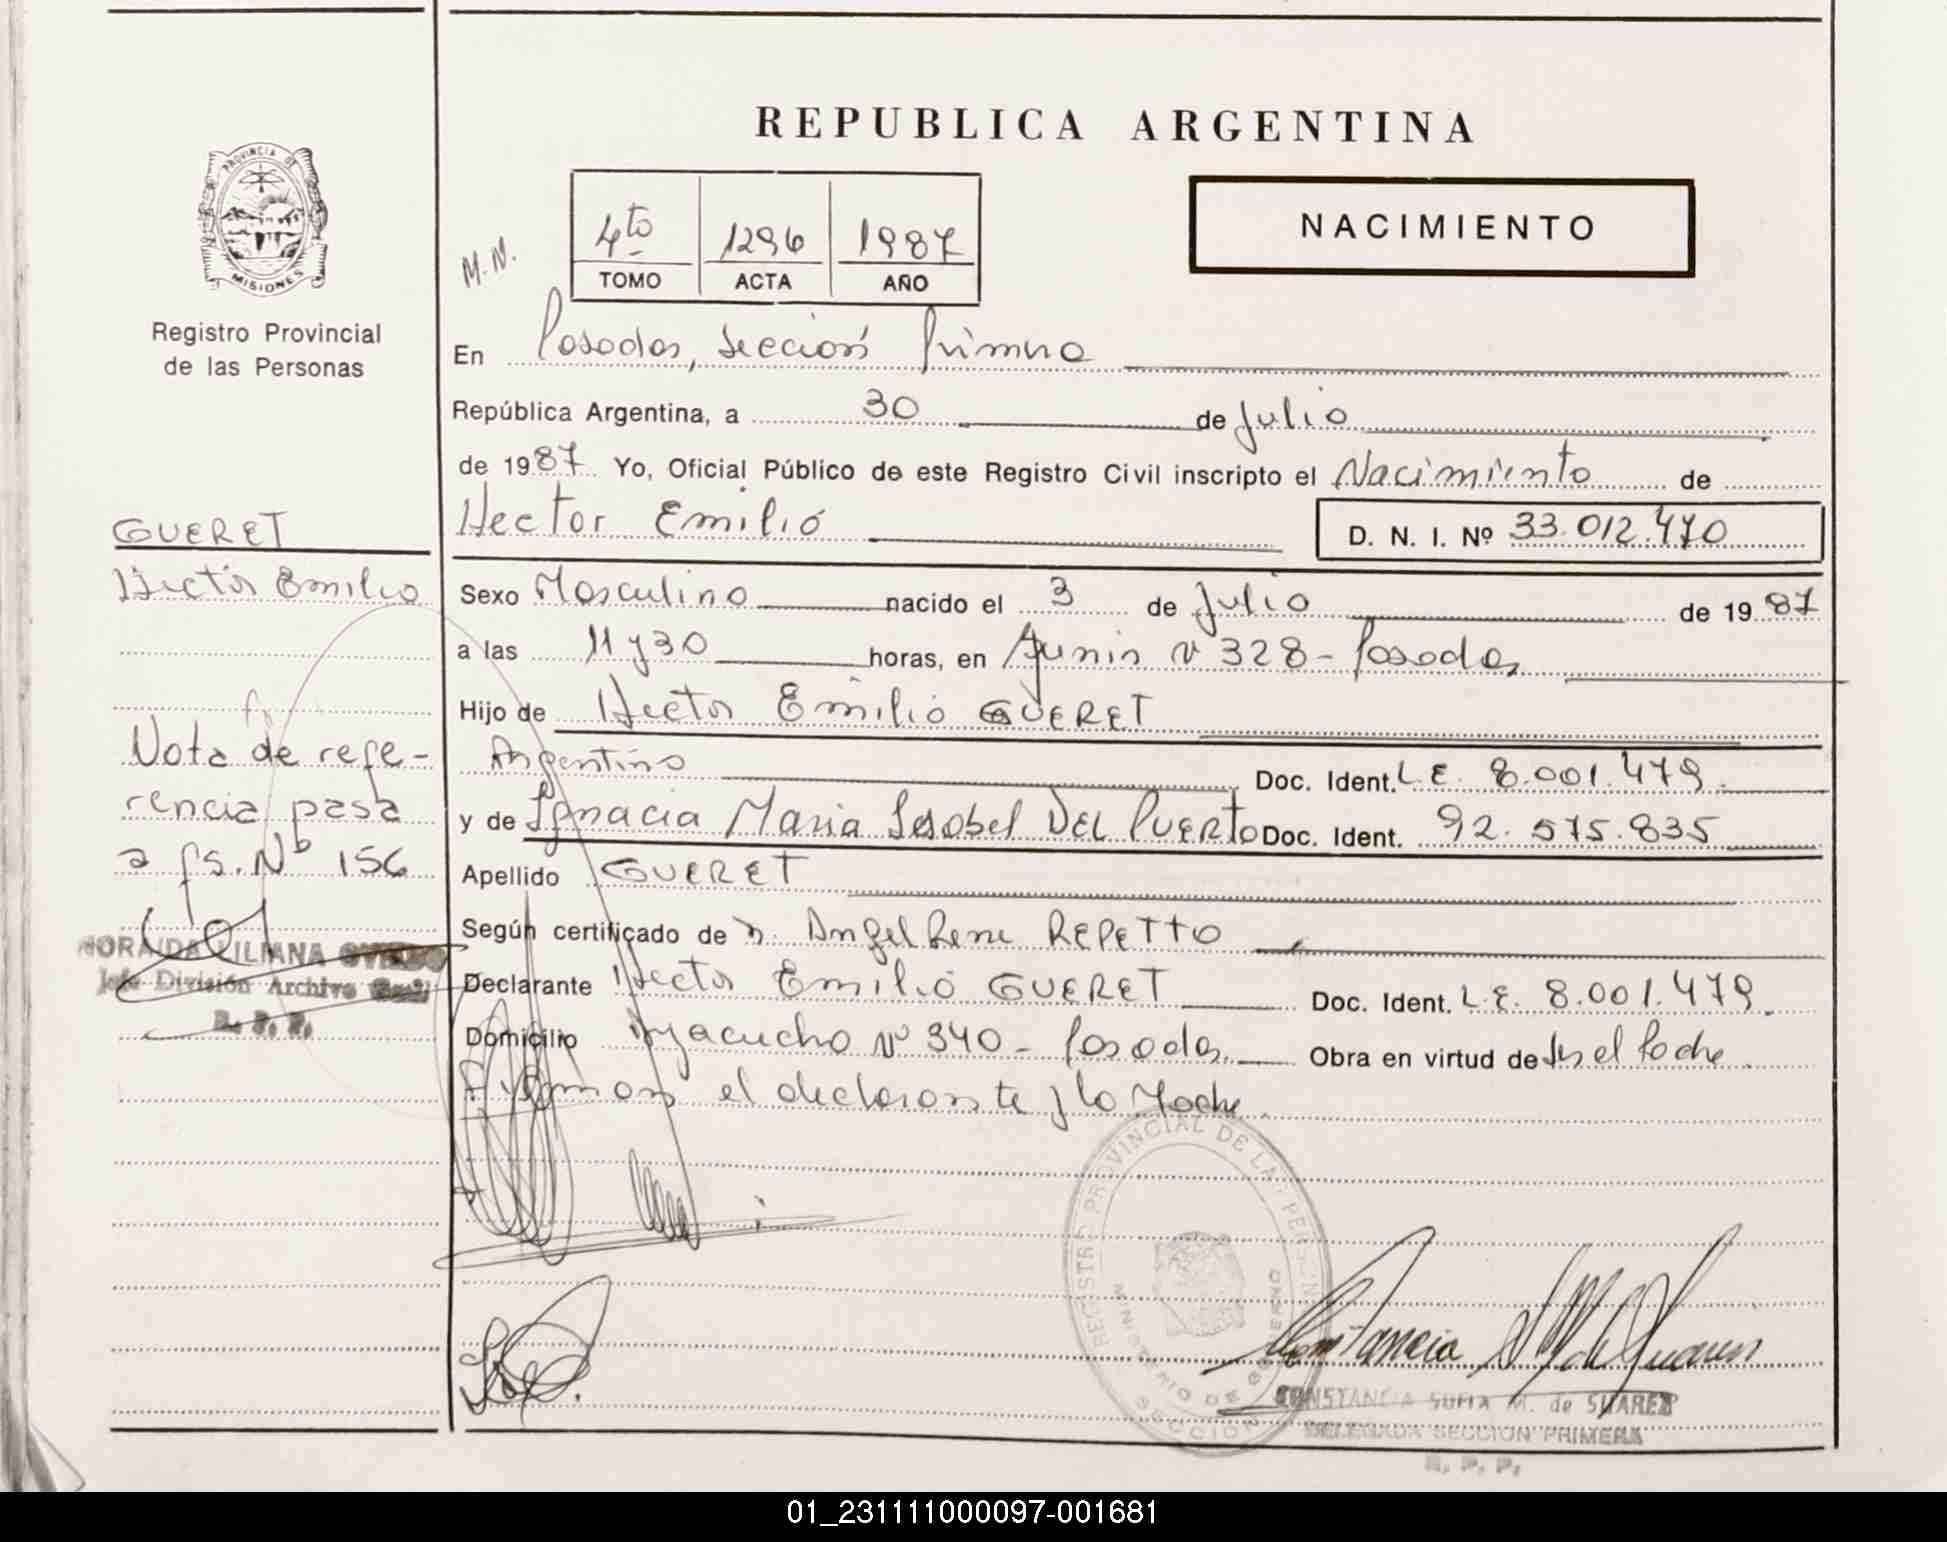 REPUBLICA ARGENTINA
PROVINCIA DE
MISIONES
Registro Provincial
de las Personas
NACIMIENTO
M.N.
4to 1296 1987
TOMO ACTA AÑO
En Posadas, sección Primera
República Argentina, a 30 de Julio
de 1987 Yo, Oficial Público de este Registro Civil inscripto el Nacimiento de
Hector Emilio
D. N. I. Nº 33.012.470
GUERET
Hector Emilio
Sexo Masculino nacido el 3 de Julio de 1987
a las 11 y 30 horas, en Junin Nº 328 - Posadas
Hijo de Hector Emilio GUERET
Argentino Doc. Ident. L.E. 8.001.479
y de Ignacia Maria Isabel DEL PUERTO Doc. Ident. 92.575.835
Apellido GUERET
Según certificado de Dr. Angel Rene REPETTO
Declarante Hector Emilio GUERET Doc. Ident. L.E. 8.001.479
Domicilio Ayacucho Nº 340 - Posadas Obra en virtud de ser el Padre
Firman el declarante y la Madre
Nota de refe-
rencia pasa
a fs. Nº 156
LILIANA
Jefe División Archivo
R. P. P.
REGISTRO PROVINCIAL DE LAS PERSONAS
MINISTERIO DE GOBIERNO
SECCION
Constancia S M de Suarez
CONSTANCIA SOFIA M. de SUAREZ
DELEGADA SECCION PRIMERA
R. P. P.
01_231111000097-001681